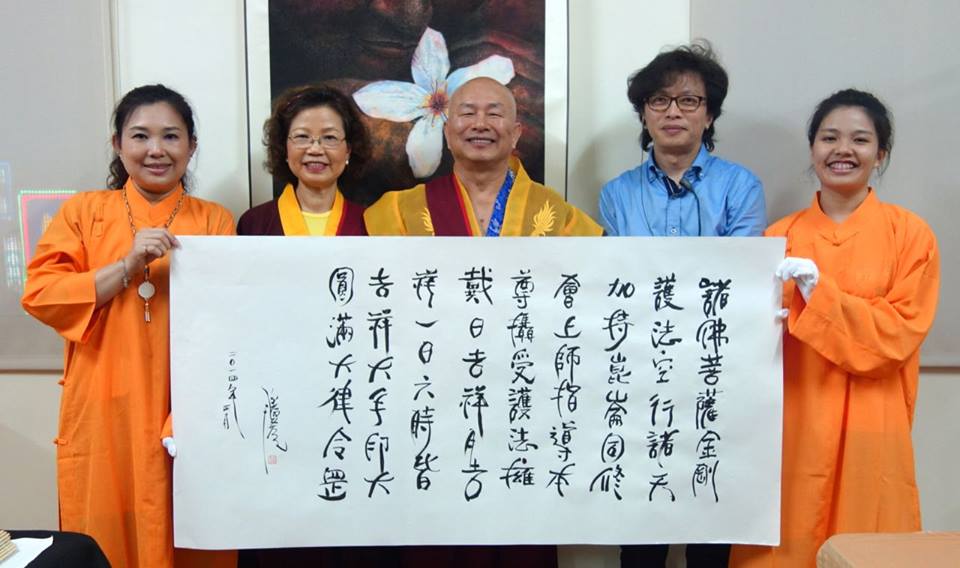 諸佛菩薩金剛
護法空行諸天
加持崑崙同修
會上師指導本
尊攝受護法擁
戴日吉祥月吉
祥一日六時皆
吉祥大手印大
圓滿大律令
二〇一四年二月